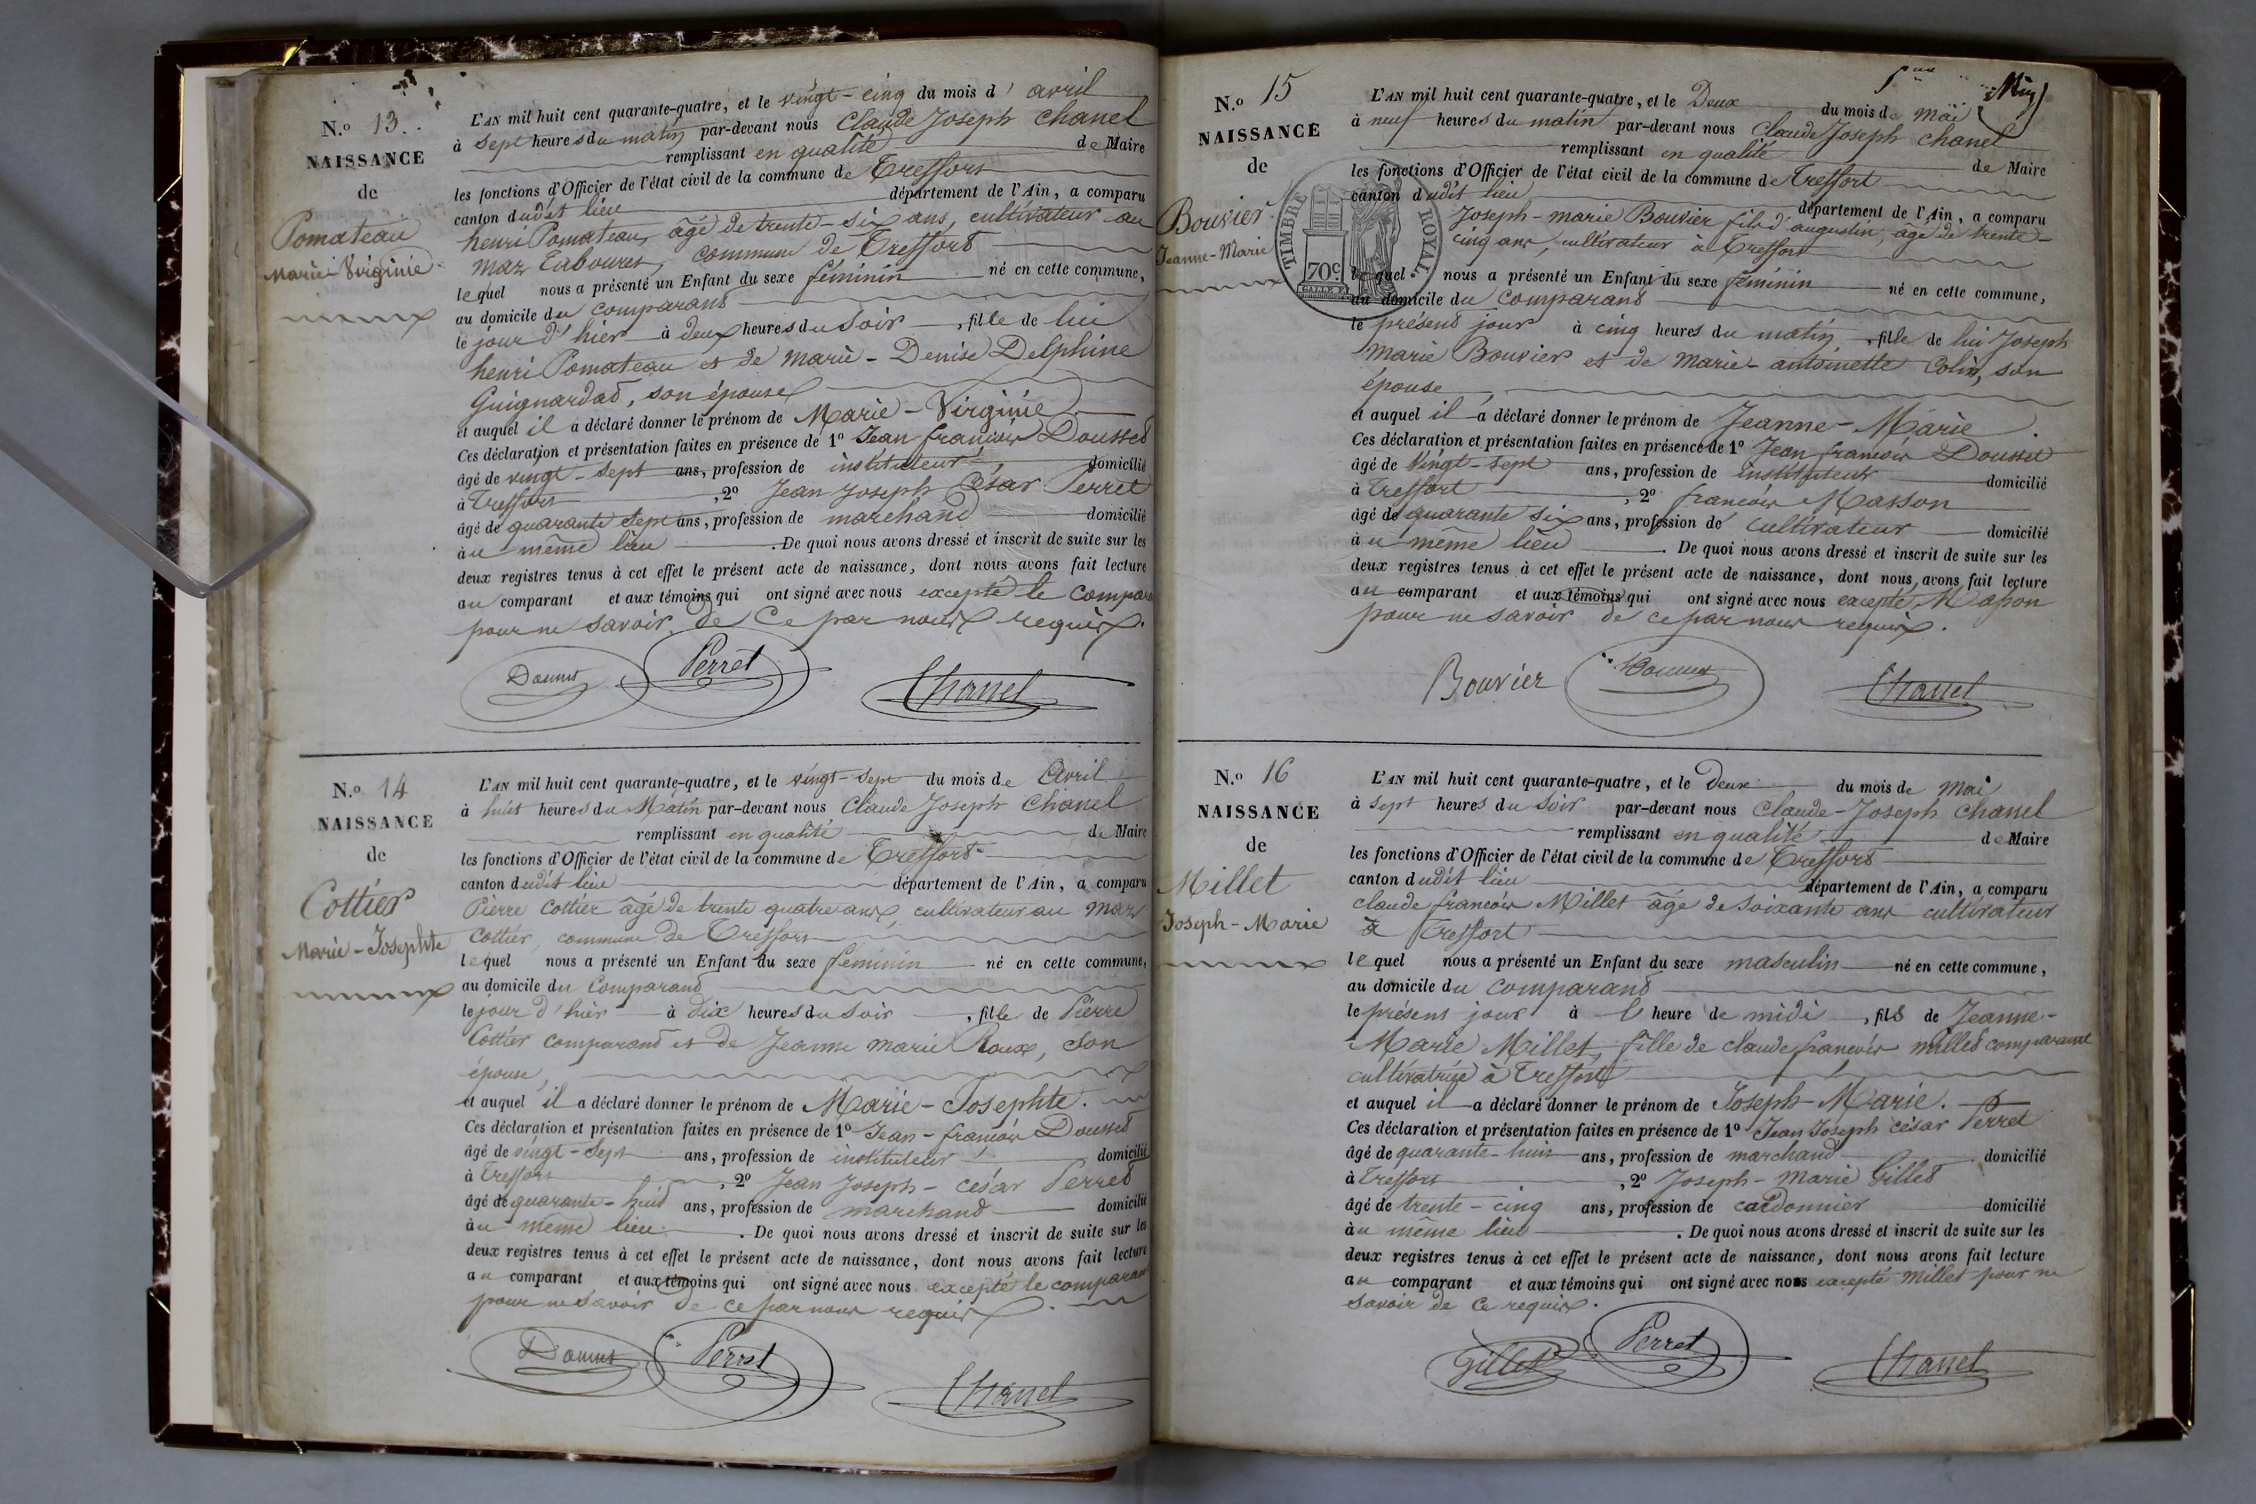 N.º 13.
NAISSANCE
de
Pomateau
Marie-Virginie
L'AN mil huit cent quarante-quatre, et le vingt-cinq du mois d'avril
à sept heures du matin par-devant nous Claude Joseph Chanel
remplissant en qualité de Maire
les fonctions d'Officier de l'état civil de la commune de Treffort
canton dudit lieu département de l'Ain, a comparu
henri Pomateau, âgé de trente-six ans, cultivateur au
maz Tabouret, commune de Treffort
lequel nous a présenté un Enfant du sexe féminin né en cette commune,
au domicile du comparant
le jour d'hier à deux heures du soir, fille de lui
henri Pomateau et de Marie-Denise Delphine
Guignardat, son épouse
et auquel il a déclaré donner le prénom de Marie-Virginie
Ces déclaration et présentation faites en présence de 1º Jean françois Dousset
âgé de vingt-sept ans, profession de instituteur domicilié
à Treffort, 2º Jean Joseph César Perret
âgé de quarante sept ans, profession de marchand domicilié
au même lieu. De quoi nous avons dressé et inscrit de suite sur les
deux registres tenus à cet effet le présent acte de naissance, dont nous avons fait lecture
au comparant et aux témoins qui ont signé avec nous excepté le compara
pour ne savoir de ce par nous requis.
Perret
Chanel
N.º 14
NAISSANCE
de
Cottier
Marie-Josephte
L'AN mil huit cent quarante-quatre, et le vingt-sept du mois de avril
à huit heures du Matin par-devant nous Claude Joseph Chanel
remplissant en qualité de Maire
les fonctions d'Officier de l'état civil de la commune de Treffort
canton dudit lieu département de l'Ain, a comparu
Pierre Cottier âgé de trente quatre ans, cultivateur au maz
Cottier, commune de Treffort
lequel nous a présenté un Enfant du sexe féminin né en cette commune,
au domicile du Comparant
le jour d'hier à dix heures du soir, fille de Pierre
Cottier comparant et de Jeanne marie Roux, son
épouse,
et auquel il a déclaré donner le prénom de Marie-Josephte.
Ces déclaration et présentation faites en présence de 1º Jean-françois Dousset
âgé de vingt-sept ans, profession de instituteur domicilié
à Treffort, 2º Jean Joseph-césar Perret
âgé de quarante-huit ans, profession de marchand domicilié
au même lieu. De quoi nous avons dressé et inscrit de suite sur les
deux registres tenus à cet effet le présent acte de naissance, dont nous avons fait lecture
au comparant et aux témoins qui ont signé avec nous excepté le comparant
pour ne savoir de ce par nous requis.
Perret
Chanel
N.º 15
NAISSANCE
de
Bouvier
Jeanne-Marie
TIMBRE ROYAL
70 c.
L'AN mil huit cent quarante-quatre, et le Deux du mois de mai
à neuf heures du matin par-devant nous Claude Joseph Chanel
remplissant en qualité de Maire
les fonctions d'Officier de l'état civil de la commune de Treffort
canton dudit lieu département de l'Ain, a comparu
Joseph-marie Bouvier fils d'augustin, âgé de trente-
cinq ans, cultivateur à Treffort
lequel nous a présenté un Enfant du sexe féminin né en cette commune,
au domicile du comparant
le présent jour à cinq heures du matin, fille de lui Joseph
Marie Bouvier et de Marie-antoinette Colin, son
épouse,
et auquel il a déclaré donner le prénom de Jeanne-Marie.
Ces déclaration et présentation faites en présence de 1º Jean françois Dousset
âgé de vingt-sept ans, profession de instituteur domicilié
à Treffort, 2º françois Masson
âgé de quarante six ans, profession de cultivateur domicilié
au même lieu. De quoi nous avons dressé et inscrit de suite sur les
deux registres tenus à cet effet le présent acte de naissance, dont nous avons fait lecture
au comparant et aux témoins qui ont signé avec nous excepté Masson
pour ne savoir de ce par nous requis.
Bouvier
Chanel
N.º 16
NAISSANCE
de
Millet
Joseph-Marie
L'AN mil huit cent quarante-quatre, et le deux du mois de mai
à sept heures du soir par-devant nous Claude-Joseph Chanel
remplissant en qualité de Maire
les fonctions d'Officier de l'état civil de la commune de Treffort
canton dudit lieu département de l'Ain, a comparu
claude françois Millet âgé de soixante ans cultivateur
à Treffort
lequel nous a présenté un Enfant du sexe masculin né en cette commune,
au domicile du comparant
le présent jour à l heure de midi, fils de Jeanne-
Marie Millet, fille de claude françois millet comparant
cultivatrice à Treffort
et auquel il a déclaré donner le prénom de Joseph-Marie.
Ces déclaration et présentation faites en présence de 1º Jean Joseph césar Perret
âgé de quarante-huit ans, profession de marchand domicilié
à Treffort, 2º Joseph-Marie Gillet
âgé de trente-cinq ans, profession de cordonnier domicilié
au même lieu. De quoi nous avons dressé et inscrit de suite sur les
deux registres tenus à cet effet le présent acte de naissance, dont nous avons fait lecture
au comparant et aux témoins qui ont signé avec nous excepté millet pour ne
savoir de ce requis.
Gillet
Perret
Chanel